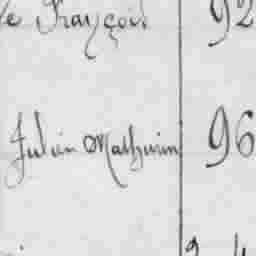 le François 92
Julien Mathurin 96